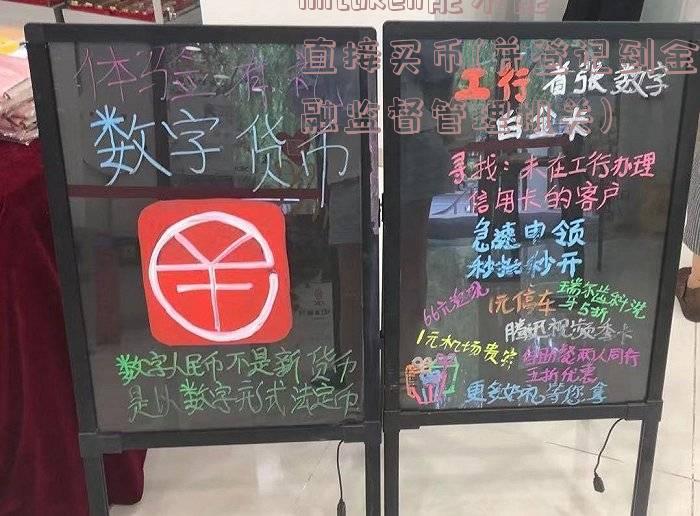 imtoken能不能
直接买币(并登记到金
融监督管理机关)
体验有礼
数字货币
数字人民币不是新货币
是以数字形式法定币
工行首张数字
白金卡
寻找:未在工行办理
信用卡的客户
急速申领
秒批秒开
66元兑现
1元停车
瑞尔齿科洗
牙5折
腾讯视频季卡
1元机场贵宾
两人同行
五折优惠
更多好礼等您拿